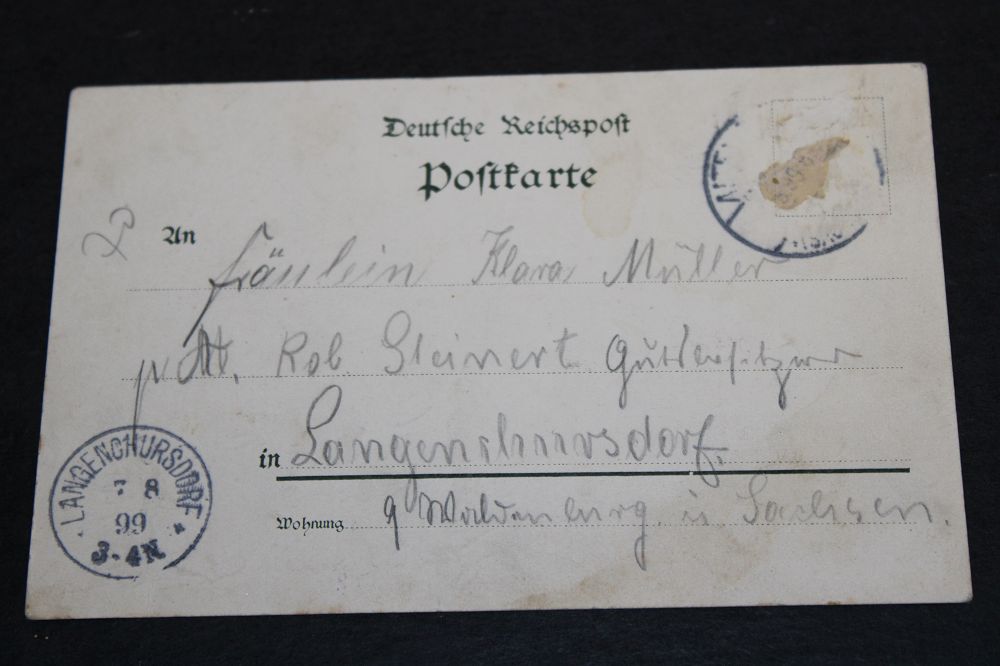 Deutsche Reichspost
Postkarte
An
Fräulein Klara Müller
Rob Steinert Gutsbesitzer
in Langenchursdorf.
Wohnung Waldenburg i Sachsen.
LANGENCHURSDORF
7 8
99
3-4N